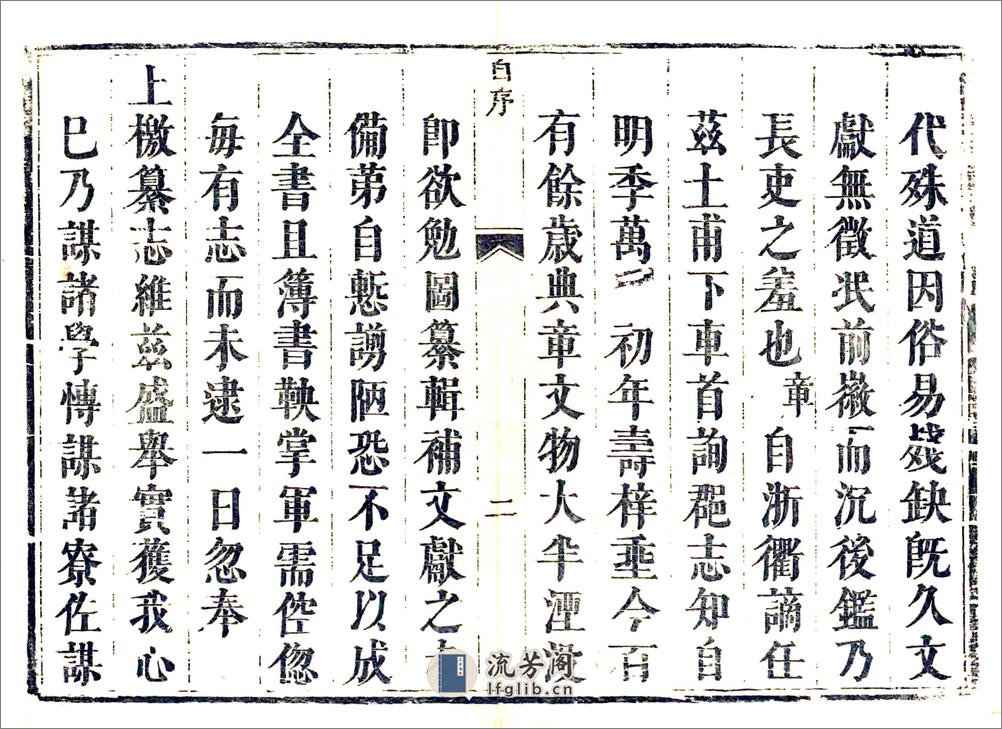 代殊道因俗易殘缺旣久文
獻無徵泯前徽而沉後鑑乃
長吏之羞也章自浙衢謫任
茲土甫下車首詢郡志知自
明季萬初年壽梓垂今百
有餘歲典章文物大半湮沒
自序
二
卽欲勉圖纂輯補文獻之
備苐自慙謭陋恐不足以成
全書且簿書鞅掌軍需倥偬
每有志而未逮一日忽奉
上檄纂志維茲盛舉實獲我心
巳乃謀諸學博謀諸寮佐謀
流芳阁
lfglib.cn